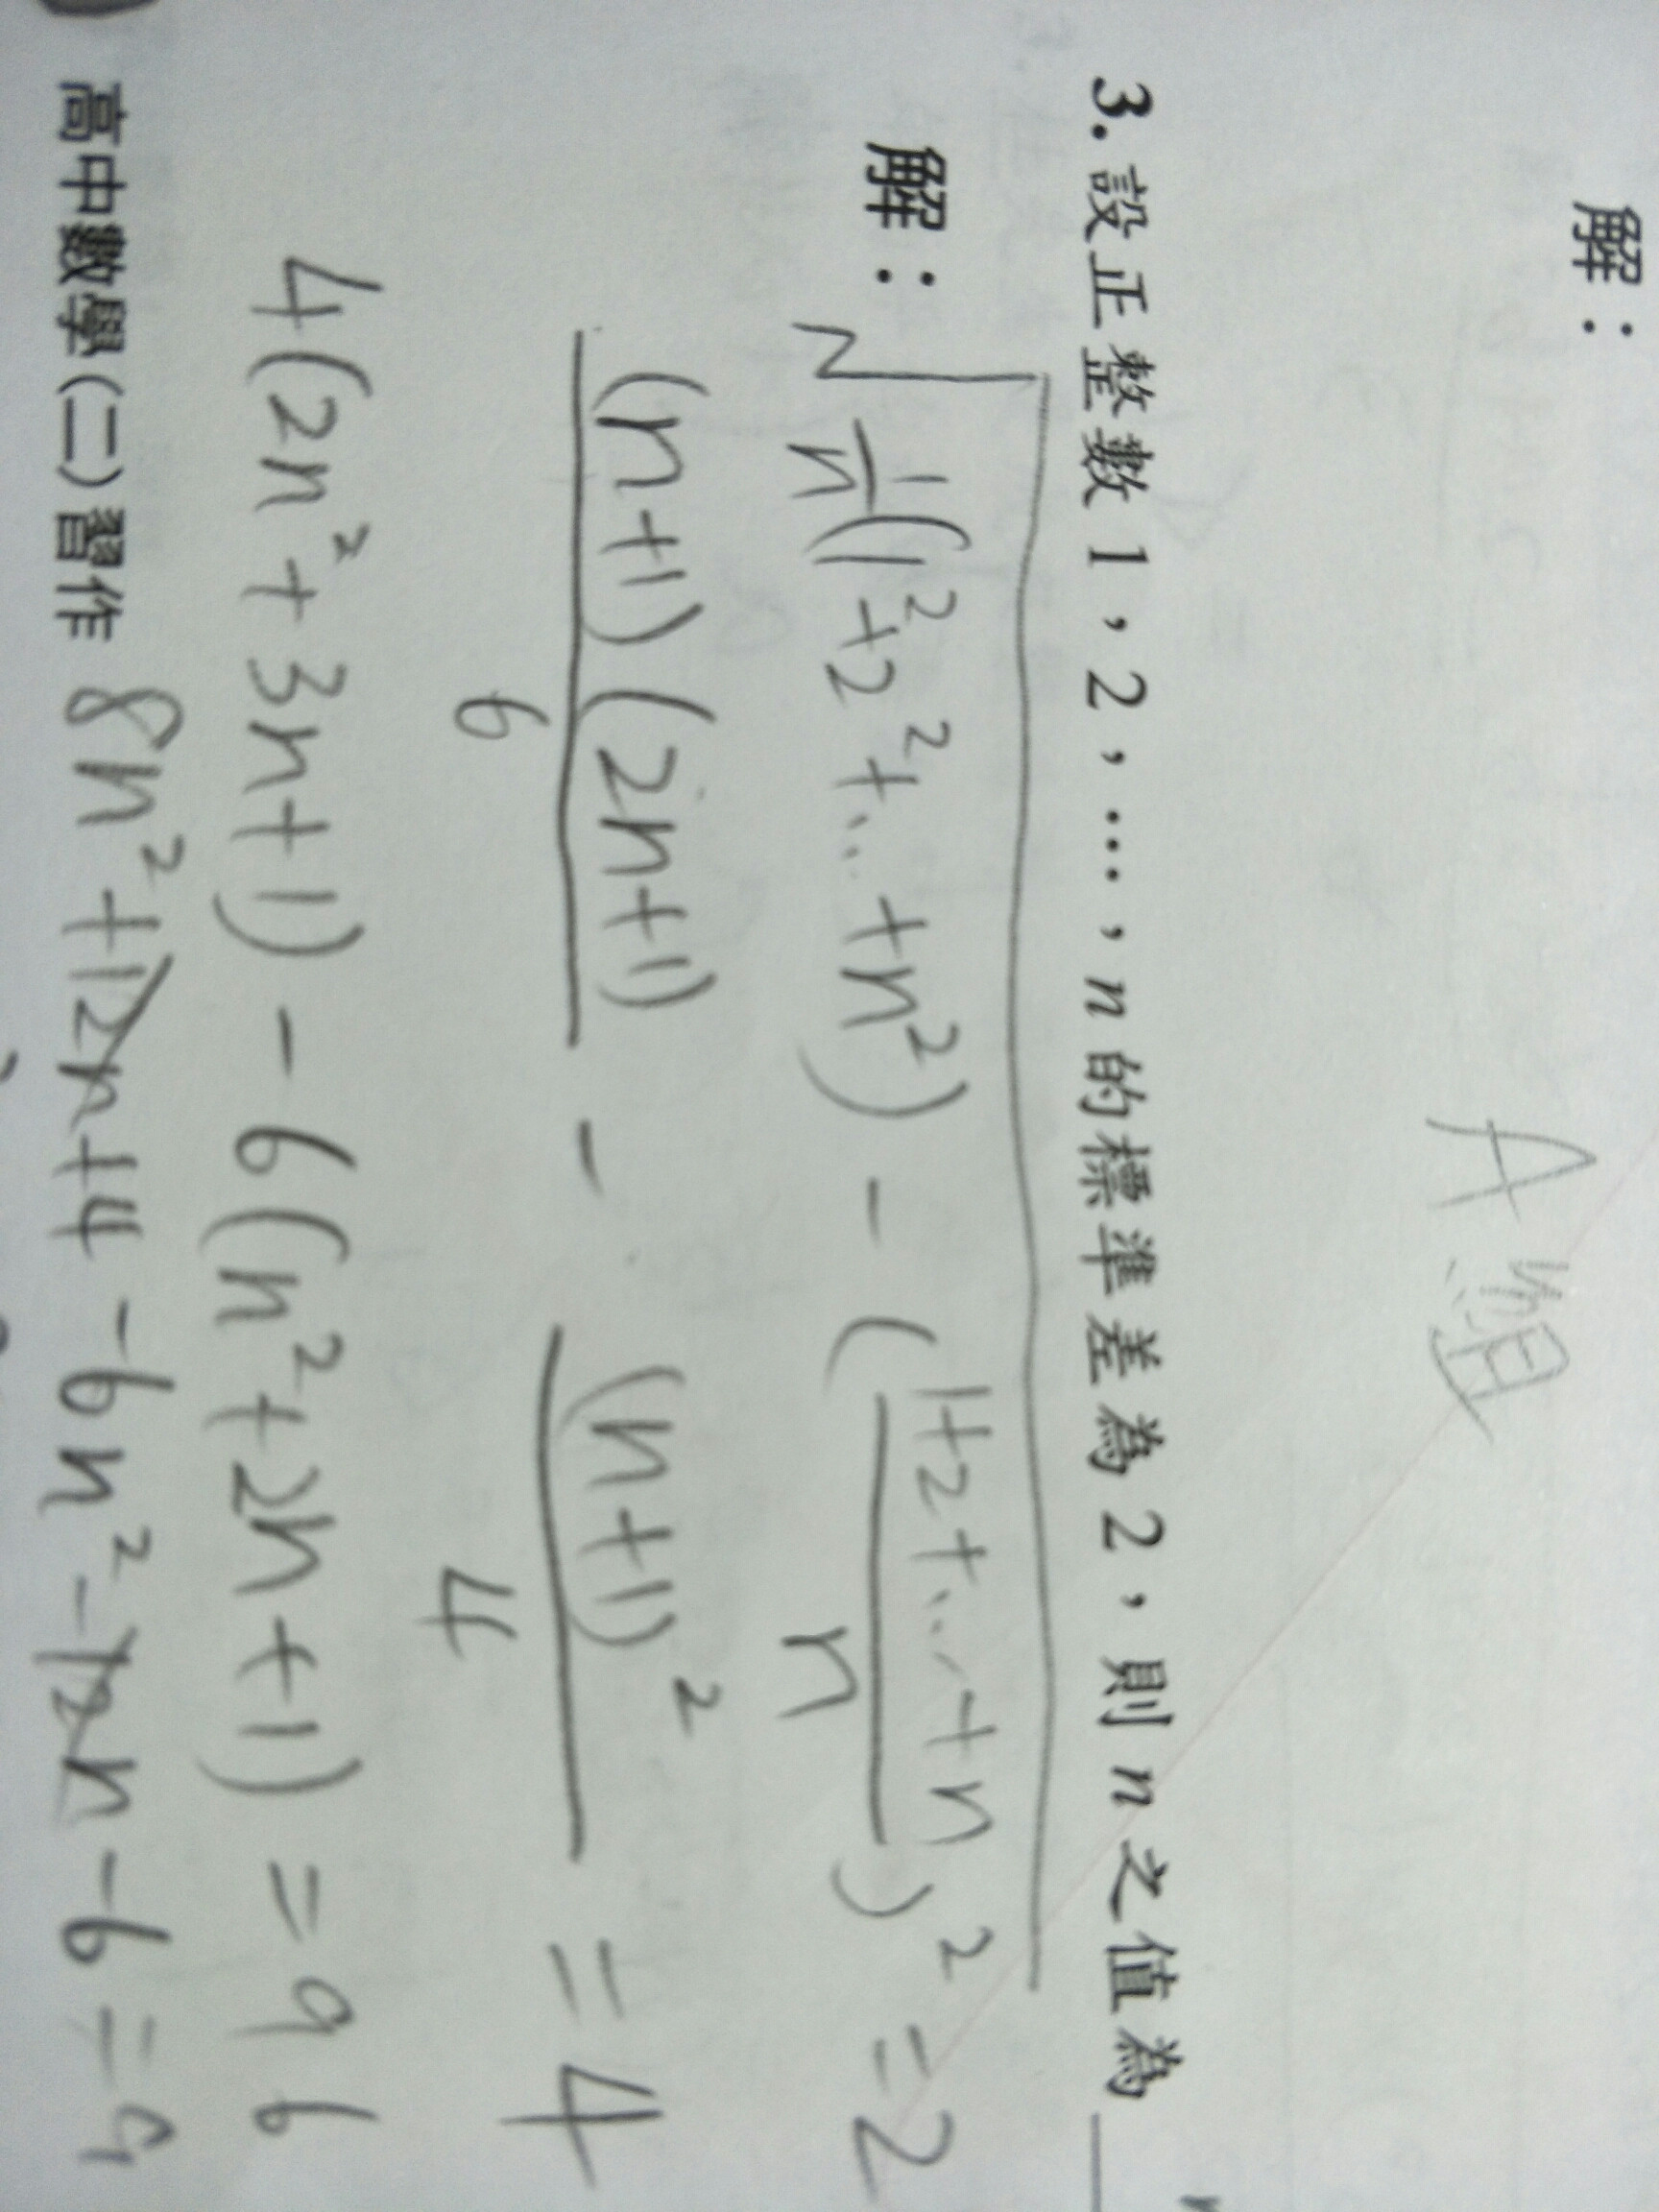 解：
A組
3. 設正整數 1，2，…，n 的標準差為 2，則 n 之值為
解：√(1/n(1²+2²+...+n²) - ((1+2+...+n)/n)²) = 2
(n+1)(2n+1)/6 - (n+1)²/4 = 4
4(2n²+3n+1) - 6(n²+2n+1) = 96
高中數學(二)習作 8n²+12n+4-6n²-12n-6=9